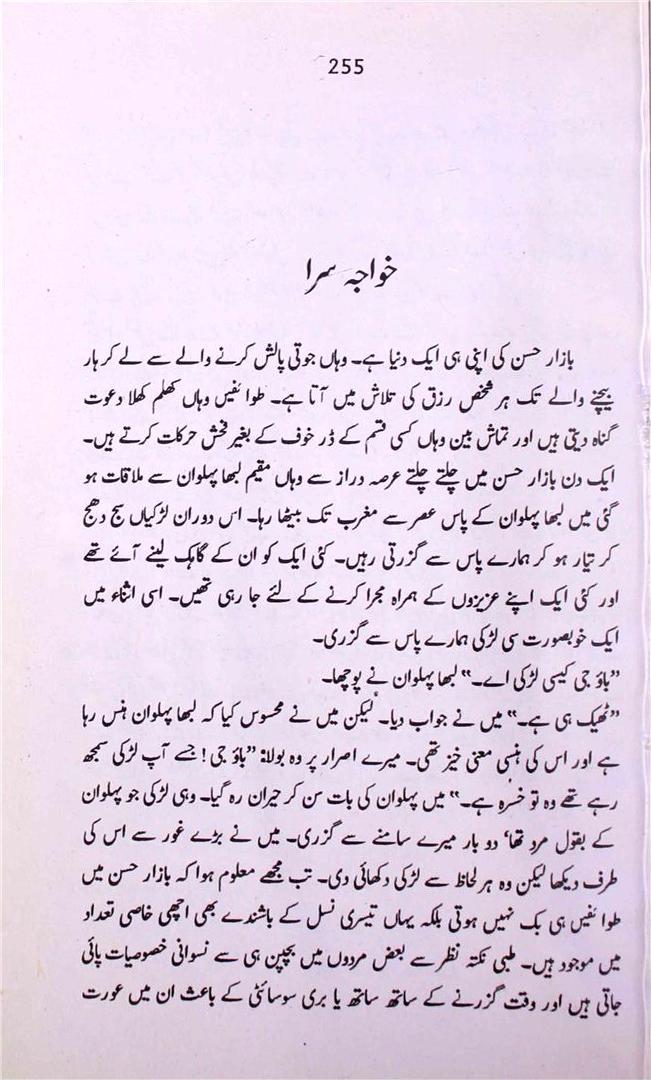 255
خواجہ سرا
بازار حسن کی اپنی ہی ایک دنیا ہے۔ وہاں جوتی پالش کرنے والے سے لے کر ہار
بیچنے والے تک ہر شخص رزق کی تلاش میں آتا ہے۔ طوائفیں وہاں کھلم کھلا دعوت
گناہ دیتی ہیں اور تماش بین وہاں کسی قسم کے ڈر خوف کے بغیر فحش حرکات کرتے ہیں۔
ایک دن بازار حسن میں چلتے چلتے عرصہ دراز سے وہاں مقیم لبھا پہلوان سے ملاقات ہو
گئی میں لبھا پہلوان کے پاس عصر سے مغرب تک بیٹھا رہا۔ اس دوران لڑکیاں سج دھج
کر تیار ہو کر ہمارے پاس سے گزرتی رہیں۔ کئی ایک کو ان کے گاہک لینے آئے تھے
اور کئی ایک اپنے عزیزوں کے ہمراہ مجرا کرنے کے لئے جا رہی تھیں۔ اسی اثناء میں
ایک خوبصورت سی لڑکی ہمارے پاس سے گزری۔
”باؤ جی کیسی لڑکی اے۔“ لبھا پہلوان نے پوچھا۔
”ٹھیک ہی ہے۔“ میں نے جواب دیا۔ لیکن میں نے محسوس کیا کہ لبھا پہلوان ہنس رہا
ہے اور اس کی ہنسی معنی خیز تھی۔ میرے اصرار پر وہ بولا: ”باؤ جی! جسے آپ لڑکی سمجھ
رہے تھے وہ تو خسرہ ہے۔“ میں پہلوان کی بات سن کر حیران رہ گیا۔ وہی لڑکی جو پہلوان
کے بقول مرد تھا‘ دو بار میرے سامنے سے گزری۔ میں نے بڑے غور سے اس کی
طرف دیکھا لیکن وہ ہر لحاظ سے لڑکی دکھائی دی۔ تب مجھے معلوم ہوا کہ بازار حسن میں
طوائفیں ہی بک نہیں ہوتی بلکہ یہاں تیسری نسل کے باشندے بھی اچھی خاصی تعداد
میں موجود ہیں۔ طبی نکتہ نظر سے بعض مردوں میں بچپن ہی سے نسوانی خصوصیات پائی
جاتی ہیں اور وقت گزرنے کے ساتھ ساتھ یا بری سوسائٹی کے باعث ان میں عورت